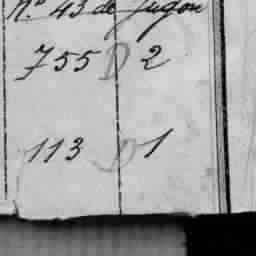 N.º 43 de Jugon
755 D 2
113 D 1